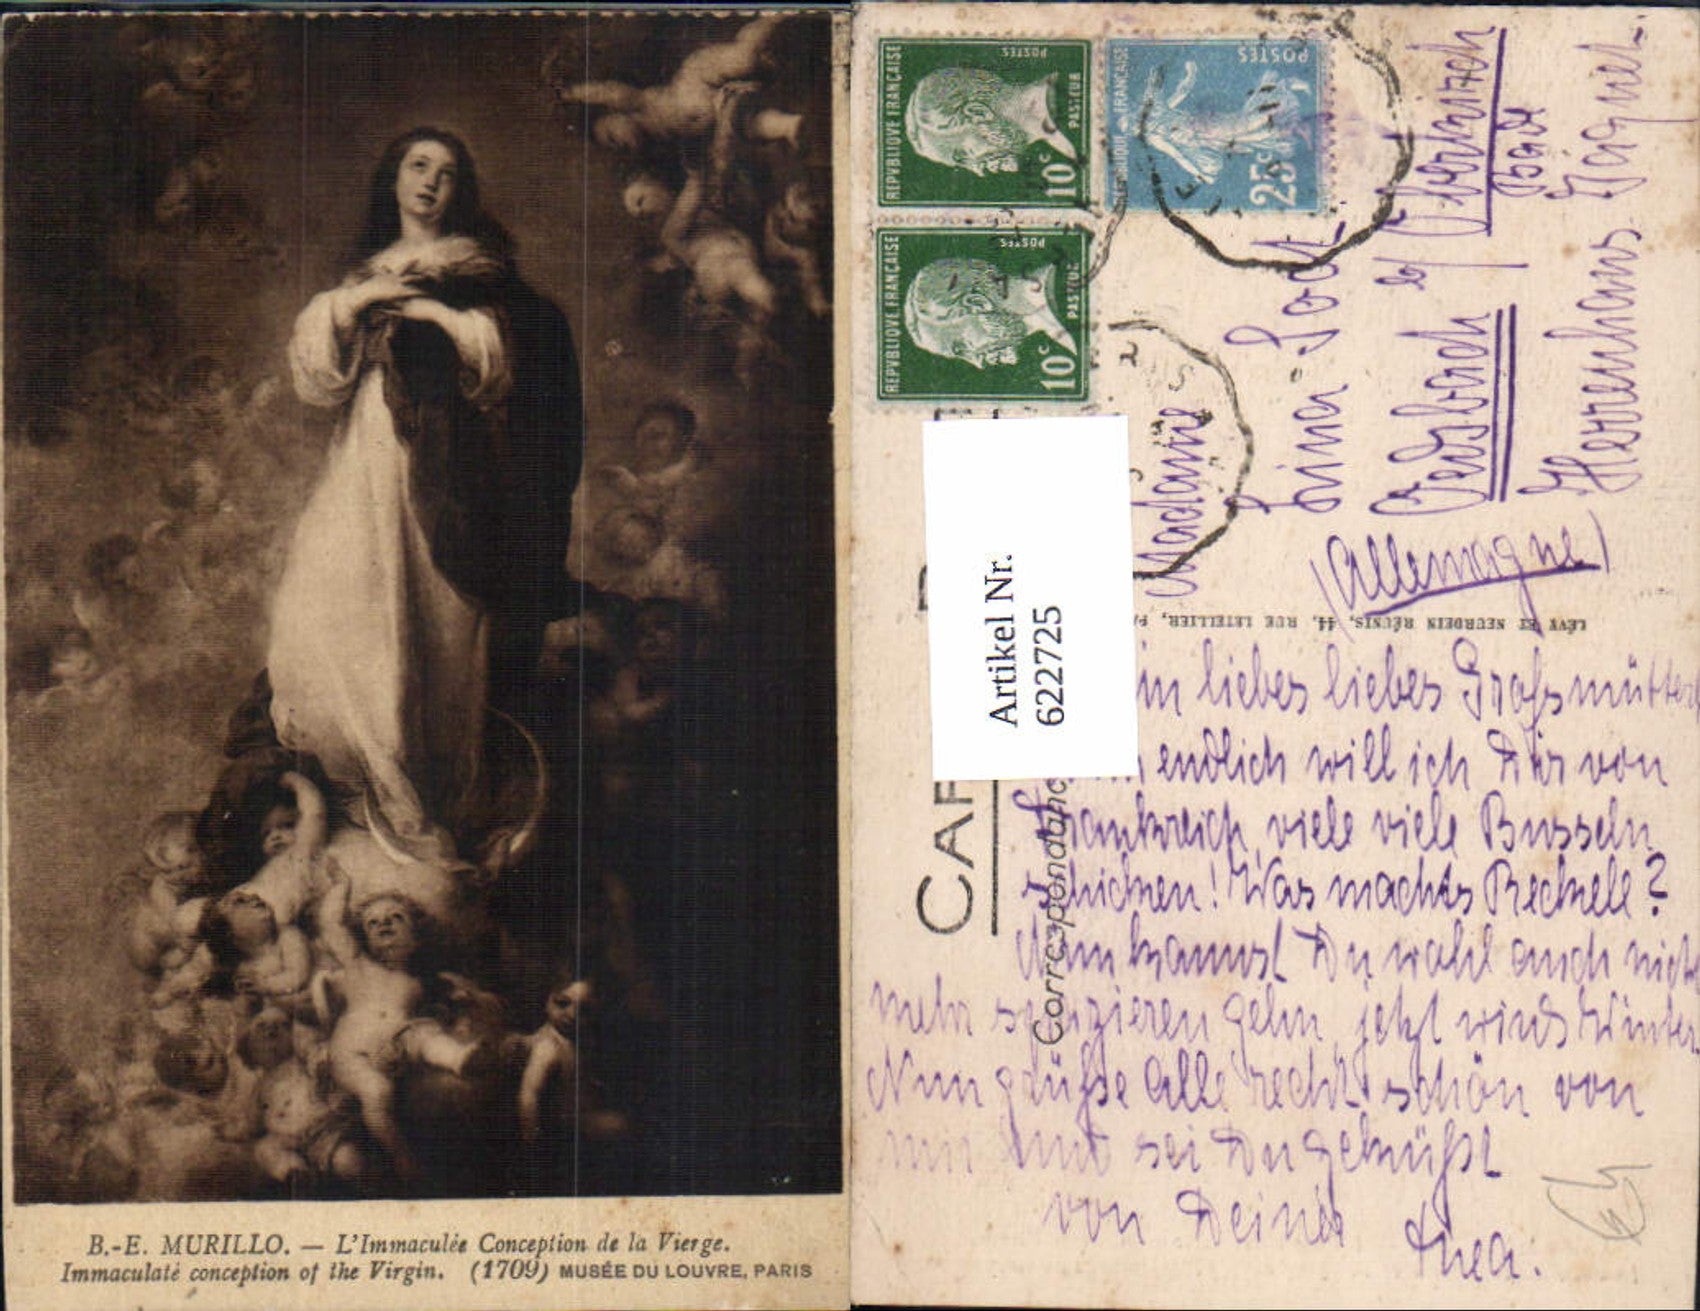 B.-E. MURILLO. — L'Immaculée Conception de la Vierge.
Immaculate conception of the Virgin. (1709) MUSÉE DU LOUVRE, PARIS
REPVBLIQVE FRANÇAISE
POSTES
PASTEUR
10c
REPVBLIQVE FRANÇAISE
POSTES
PASTEUR
10c
REPUBLIQUE FRANÇAISE
POSTES
25c
Artikel Nr.
622725
CAR
Correspondance
LÉVY ET NEURDEIN RÉUNIS, 44, RUE LETELLIER, PA
Madame
Lina
Oedsbach
b/ Oberkirch
Baden
Herrenhaus
(Allemagne)
in liebes liebes Grossmütter
endlich will ich Dir von
Frankreich viele viele Busseln
schicken! Was machts Reckele?
Nun kannst Du wohl auch nicht
mehr spazieren gehn, jetzt wirds Winter.
Nun grüsse Alle recht schön von
mir und sei Du geküsst
von Deiner
Thea.